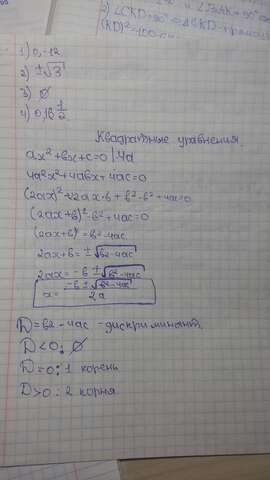 2) ∠CKD=90°
(KD)²=100
1) 0, -12
2) ±√3
3) ∅
4) 0,16 1/2
Квадратные уравнения
ax²+bx+c=0 |·4a
4a²x²+4abx+4ac=0
(2ax)²+2·2ax·b+b²-b²+4ac=0
(2ax+b)²-b²+4ac=0
(2ax+b)²=b²-4ac
2ax+b=±√b²-4ac
2ax=-b±√b²-4ac
x=-b±√b²-4ac/2a
D=b²-4ac -дискриминант
D<0: ∅
D=0: 1 корень
D>0: 2 корня